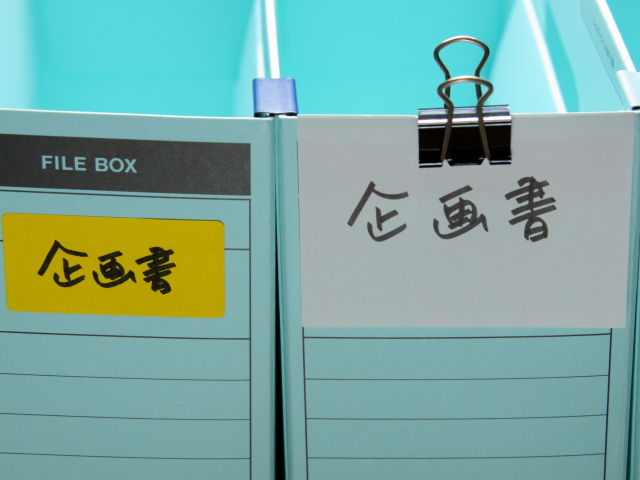 FILE BOX
企画書
企画書